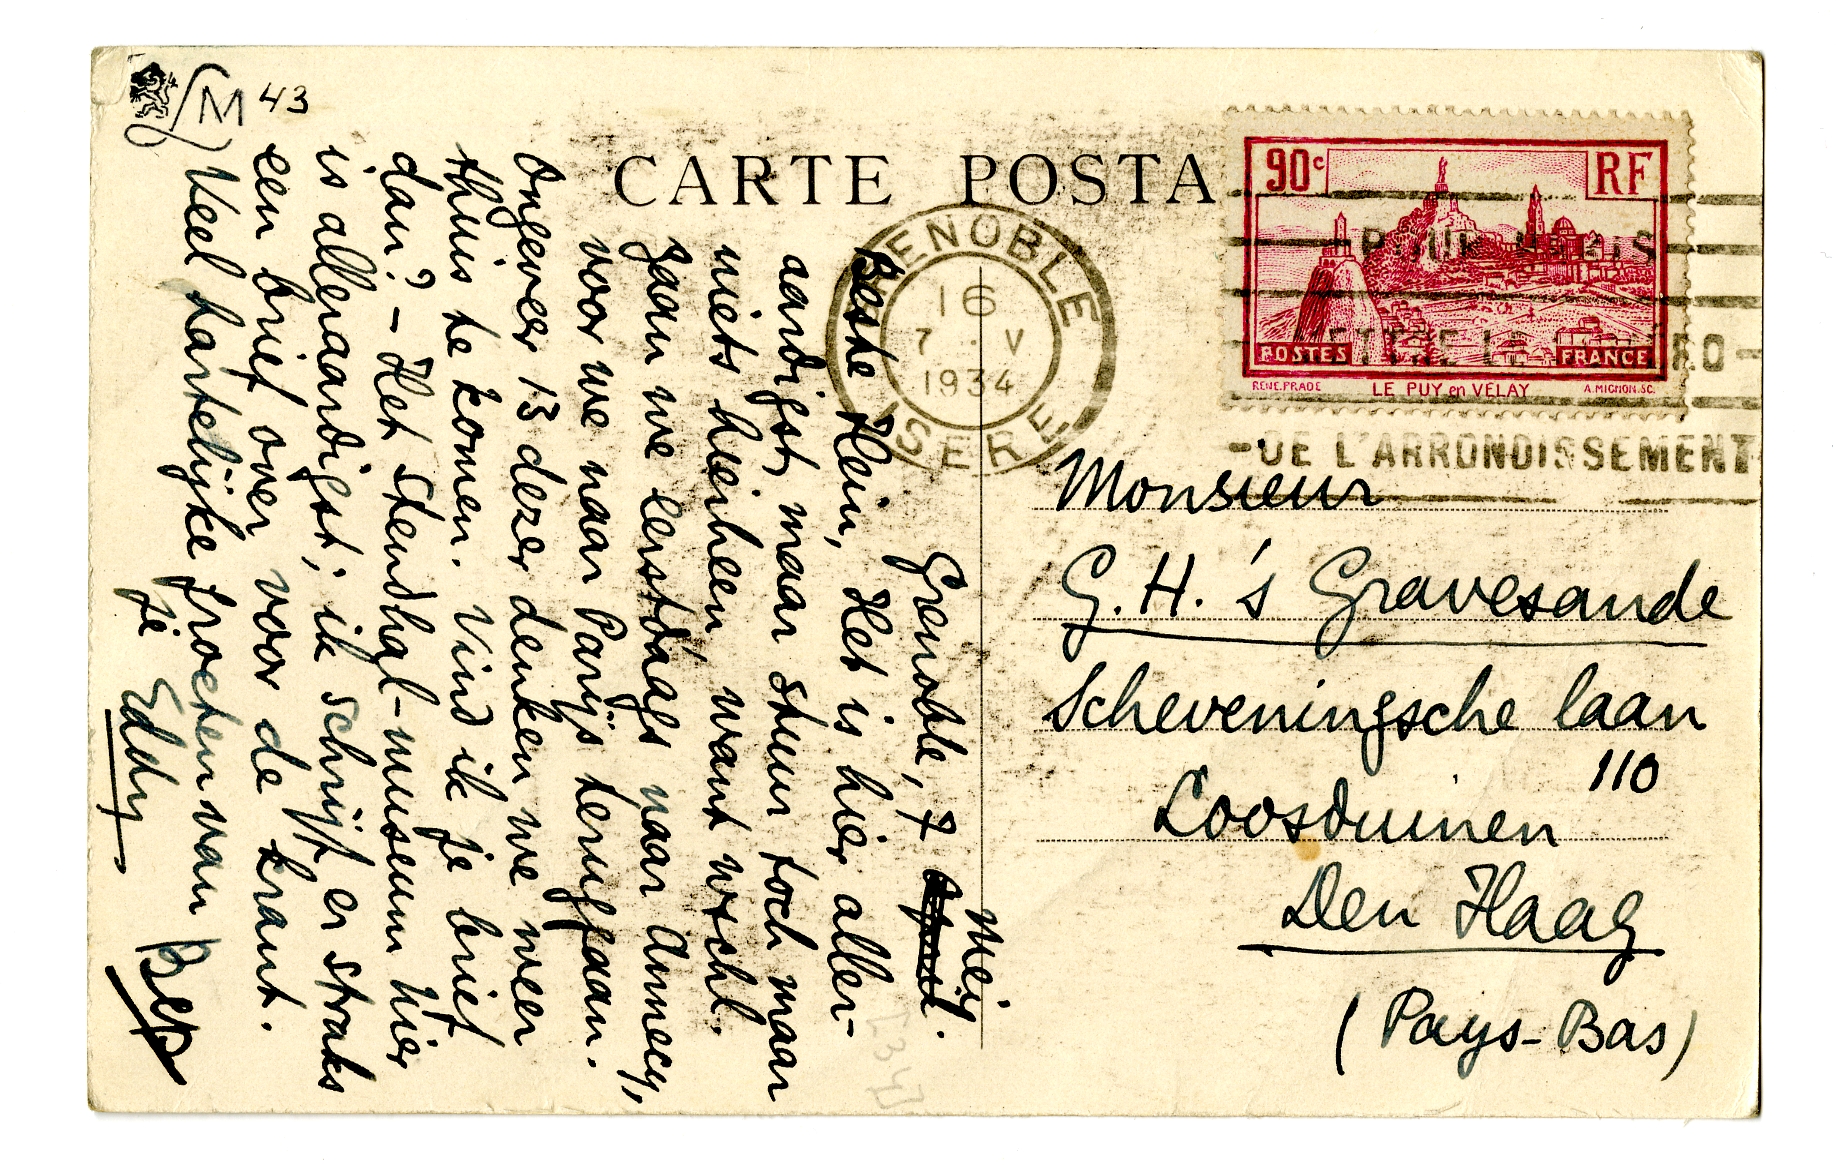 M 43
CARTE POSTA
GRENOBLE
16
7 · V
1934
ISERE
90c
RF
POSTES
FRANCE
RENE.PRADE
LE PUY en VELAY
A.MIGNON.SC.
POUR PARIS
METTRE LE NUMÉRO
DE L'ARRONDISSEMENT
Grenoble, 7
Mei.
Beste Hein, Het is hier aller-
aardigst, maar stuur toch maar
niets hierheen, want wscht.
gaan we eerstdaags naar Annecy,
voor we naar Parijs teruggaan.
Ongeveer 13 dezer denken we weer
thuis te komen. Vind ik je brief
dan? – Het Stendhal-museum hier
is alleraardigst; ik schrijf er straks
een brief over voor de krant.
Veel hartelijke groeten van
je Eddy
Bep
Monsieur
G. H. 's Gravesande
Scheveningsche laan
110
Loosduinen
Den Haag
(Pays-Bas)
[34]